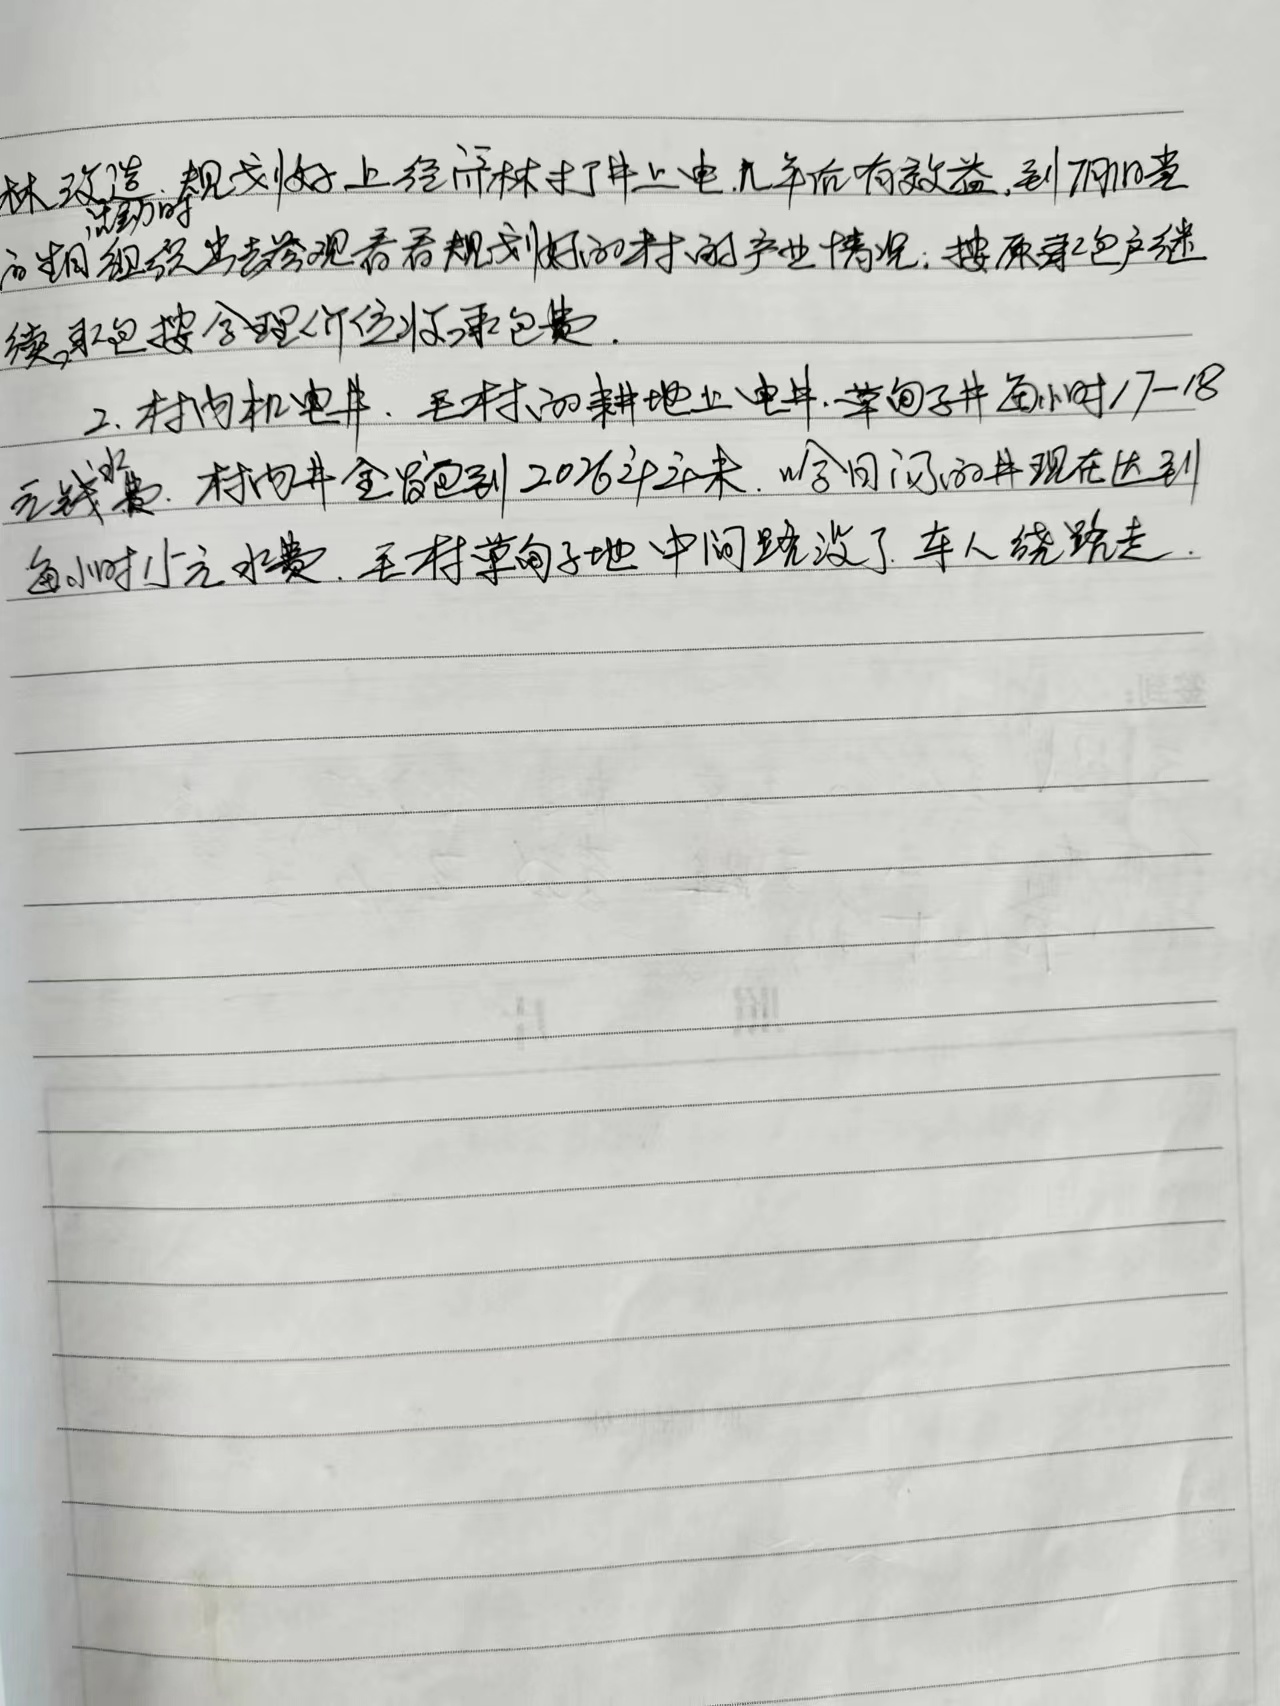 林改造.规划好上经济林打井上电.几年后有效益.到7月1日党
活动时
的生日组织出去参观看看规划好的村的产业情况；按原承包户继
续承包按合理价位收承包费.
2、村内机电井.毛村的耕地上电井.草甸子井每小时17-18
元钱水费.村内井全包到2026年年末.哈日闪的井现在达到
每小时15元水费.毛村草甸子地中间路没了.车人绕路走.
签到:
照 片